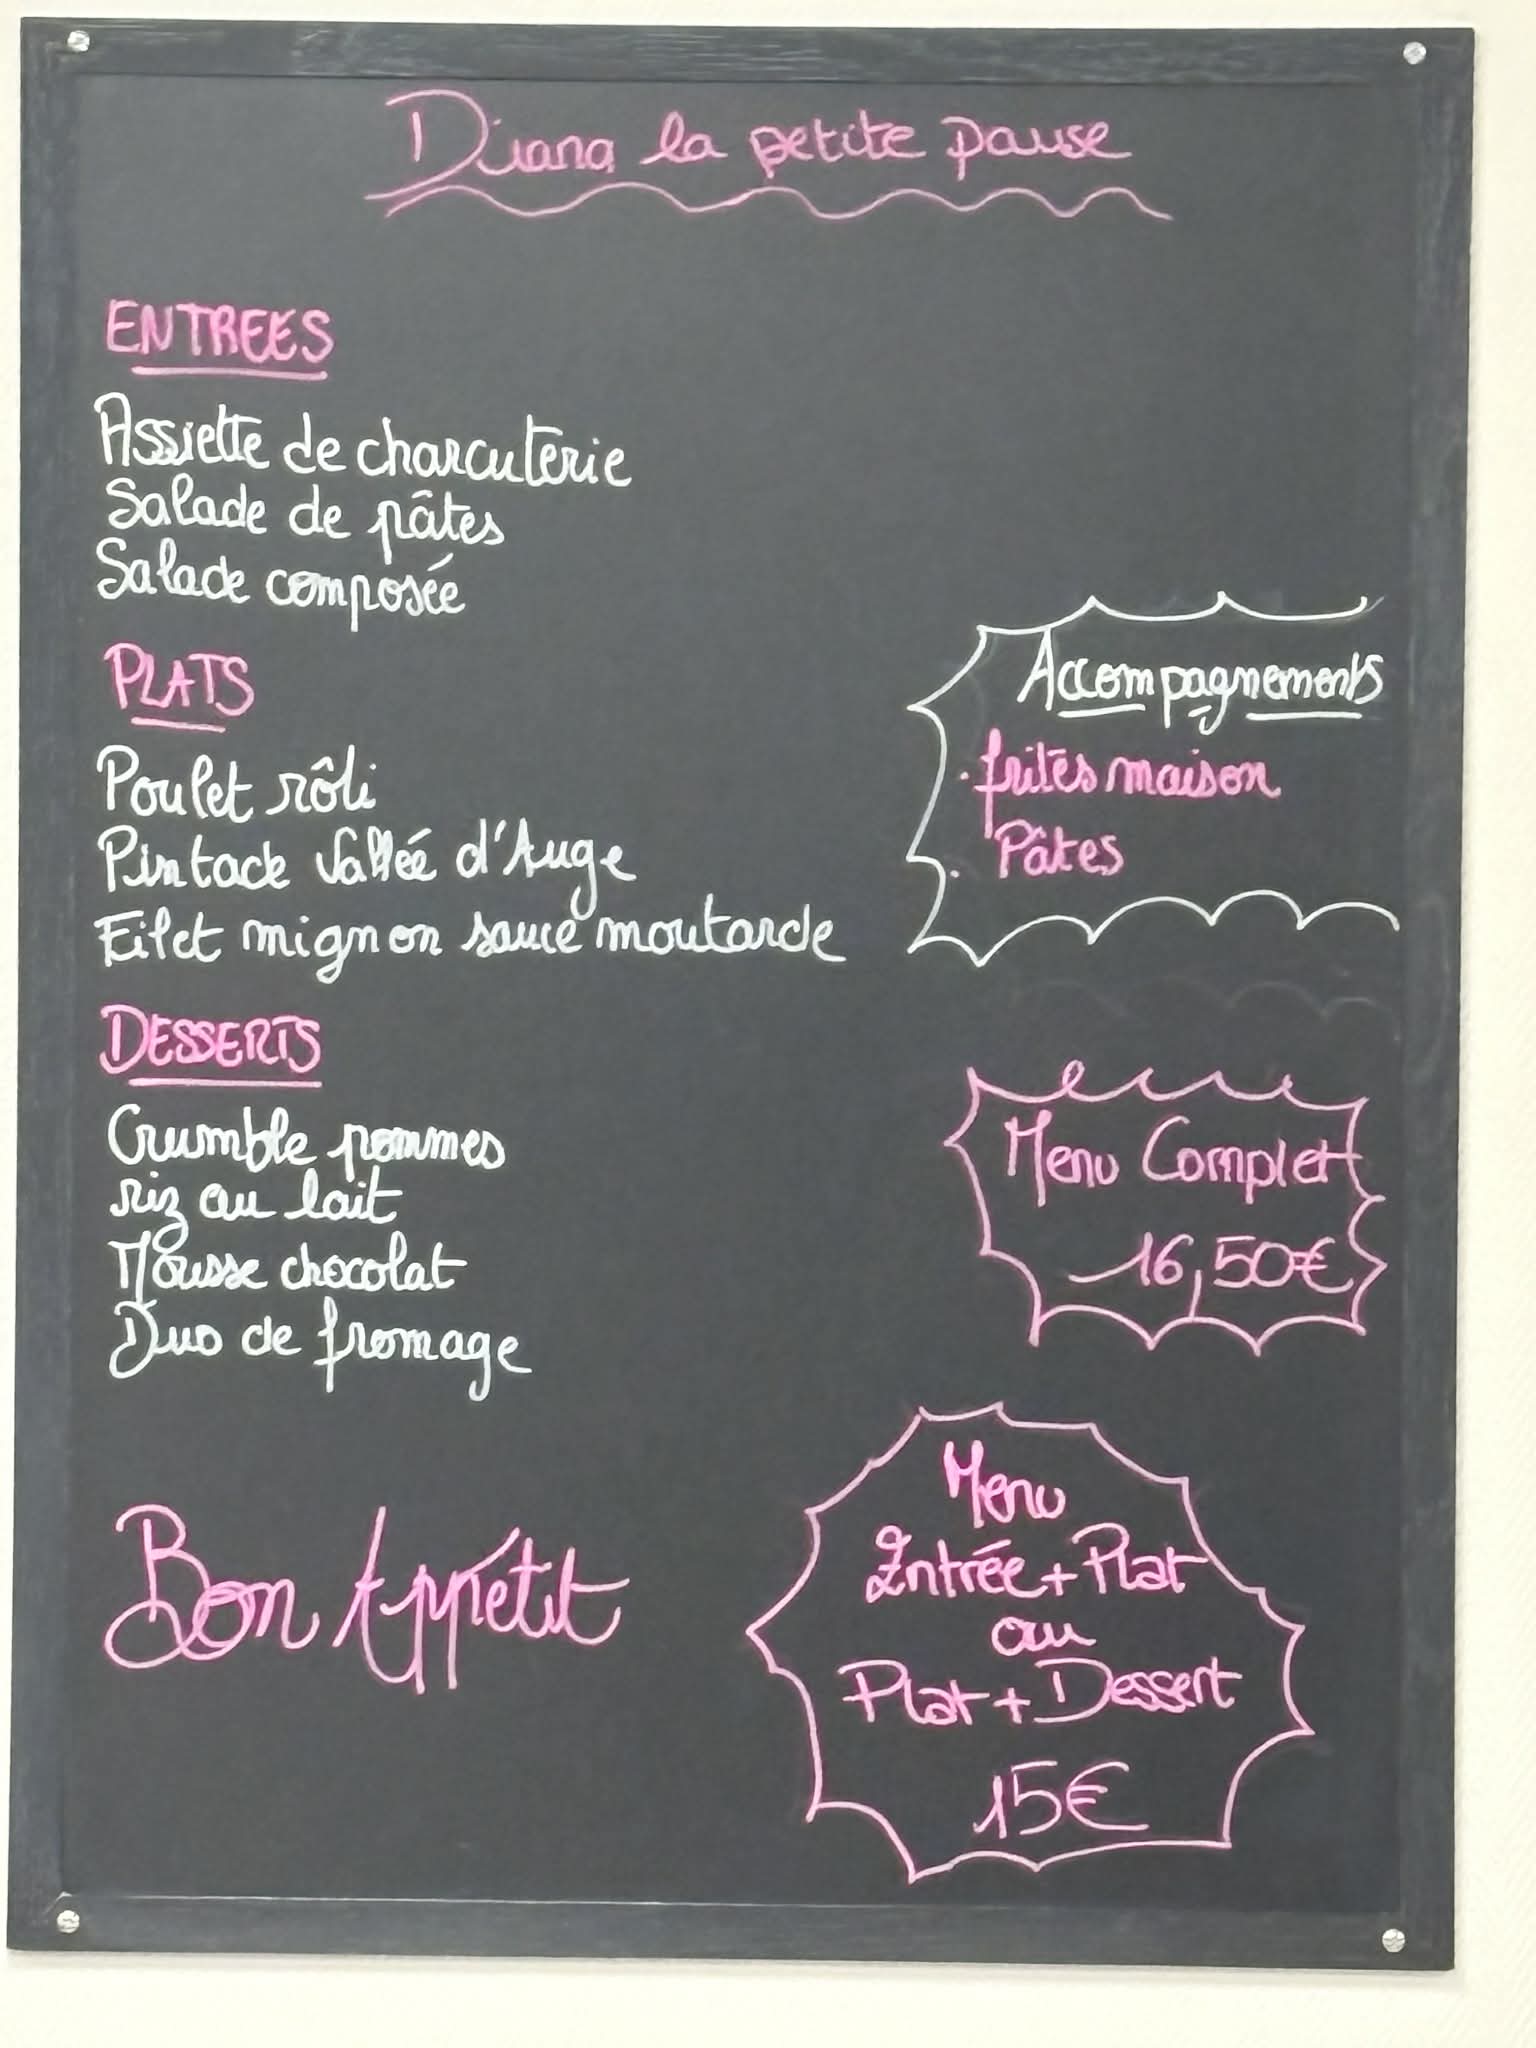 Diana la petite pause
ENTREES
Assiette de charcuterie
Salade de pâtes
Salade composée
PLATS
Poulet rôti
Pintade Vallée d'Auge
Filet mignon sauce moutarde
Accompagnements
. frites maison
. Pâtes
DESSERTS
Crumble pommes
riz au lait
Mousse chocolat
Duo de fromage
Menu Complet
16,50€
Bon Appétit
Menu
Entrée + Plat
ou
Plat + Dessert
15€